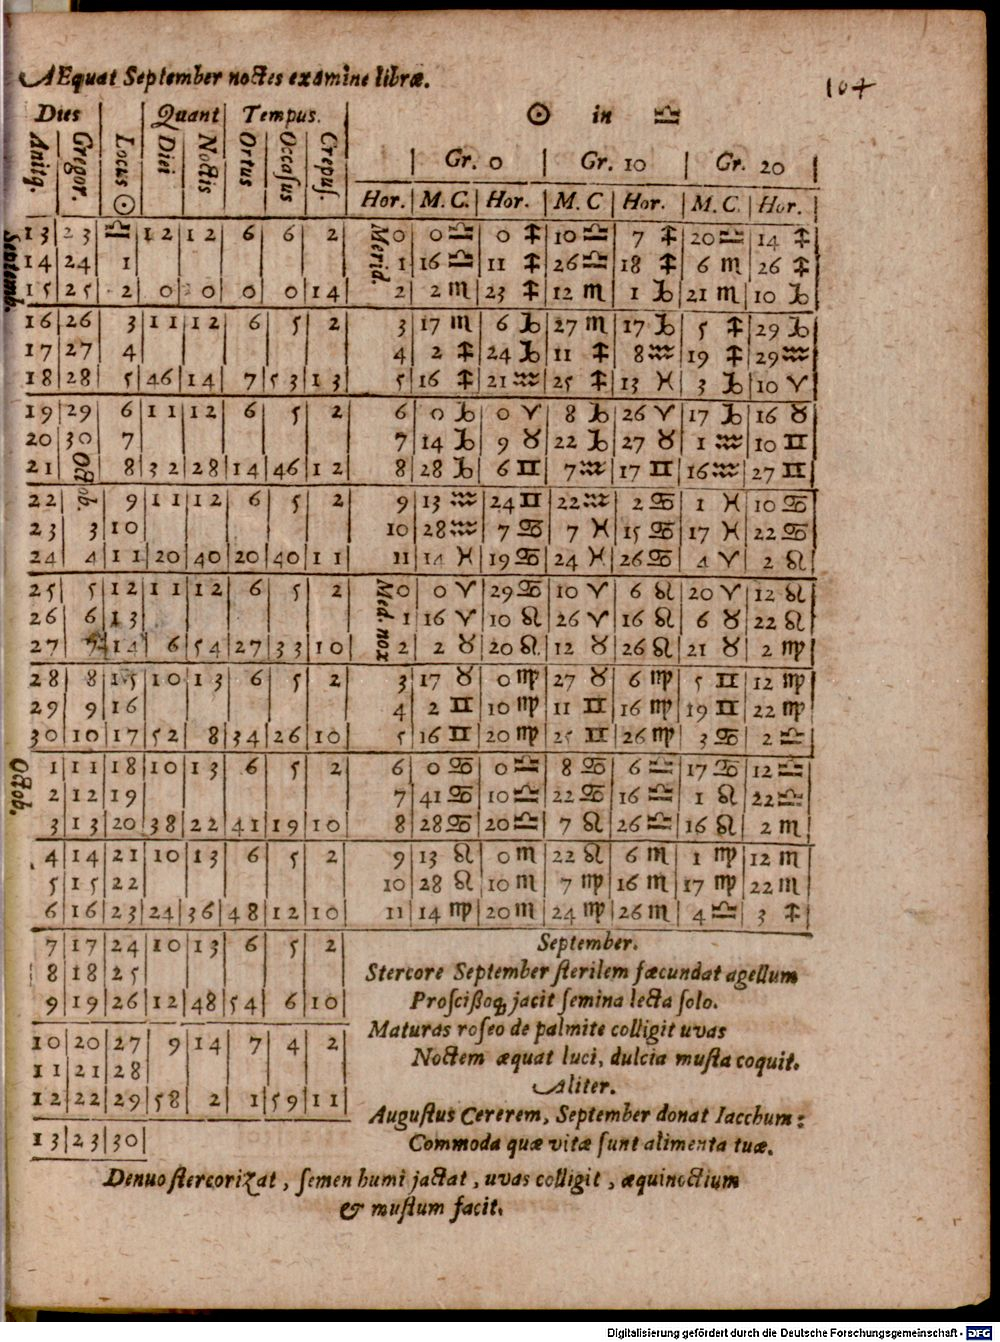 AEquat September noctes examine libræ.
104
Dies | Quant | Tempus. | ☉ in ♎
Antiq. | Gregor. | Locus ☉ | Diei | Noctis | Ortus | Occaſus | Crepuſ. | Gr. 0 | Gr. 10 | Gr. 20
Hor. | M. C. | Hor. | M. C | Hor. | M. C. | Hor.
Septemb. Merid.
13 | 23 | ♎ | 12 | 12 | 6 | 6 | 2 | 0 | 0 ♎ | 0 ♐ | 10 ♎ | 7 ♐ | 20 ♎ | 14 ♐
14 | 24 | 1 | 1 | 16 ♎ | 11 ♐ | 26 ♎ | 18 ♐ | 6 ♏ | 26 ♐
15 | 25 | 2 | 0 | 0 | 0 | 0 | 14 | 2 | 2 ♏ | 23 ♐ | 12 ♏ | 1 ♑ | 21 ♏ | 10 ♑
16 | 26 | 3 | 11 | 12 | 6 | 5 | 2 | 3 | 17 ♏ | 6 ♑ | 27 ♏ | 17 ♑ | 5 ♐ | 29 ♑
17 | 27 | 4 | 4 | 2 ♐ | 24 ♑ | 11 ♐ | 8 ♒ | 19 ♐ | 29 ♒
18 | 28 | 5 | 46 | 14 | 7 | 53 | 13 | 5 | 16 ♐ | 21 ♒ | 25 ♐ | 13 ♓ | 3 ♑ | 10 ♈
19 | 29 | 6 | 11 | 12 | 6 | 5 | 2 | 6 | 0 ♑ | 0 ♈ | 8 ♑ | 26 ♈ | 17 ♑ | 16 ♉
20 | 30 | 7 | 7 | 14 ♑ | 9 ♉ | 22 ♑ | 27 ♉ | 1 ♒ | 10 ♊
Octob.
21 | 8 | 32 | 28 | 14 | 46 | 12 | 8 | 28 ♑ | 6 ♊ | 7 ♒ | 17 ♊ | 16 ♒ | 27 ♊
22 | 9 | 11 | 12 | 6 | 5 | 2 | 9 | 13 ♒ | 24 ♊ | 22 ♒ | 2 ♋ | 1 ♓ | 10 ♋
23 | 3 | 10 | 10 | 28 ♒ | 7 ♋ | 7 ♓ | 15 ♋ | 17 ♓ | 22 ♋
24 | 4 | 11 | 20 | 40 | 20 | 40 | 11 | 11 | 14 ♓ | 19 ♋ | 24 ♓ | 26 ♋ | 4 ♈ | 2 ♌
Med. nox
25 | 5 | 12 | 11 | 12 | 6 | 5 | 2 | 0 | 0 ♈ | 29 ♋ | 10 ♈ | 6 ♌ | 20 ♈ | 12 ♌
26 | 6 | 13 | 1 | 16 ♈ | 10 ♌ | 26 ♈ | 16 ♌ | 6 ♉ | 22 ♌
27 | 7 | 14 | 6 | 54 | 27 | 33 | 10 | 2 | 2 ♉ | 20 ♌ | 12 ♉ | 26 ♌ | 21 ♉ | 2 ♍
28 | 8 | 15 | 10 | 13 | 6 | 5 | 2 | 3 | 17 ♉ | 0 ♍ | 27 ♉ | 6 ♍ | 5 ♊ | 12 ♍
29 | 9 | 16 | 4 | 2 ♊ | 10 ♍ | 11 ♊ | 16 ♍ | 19 ♊ | 22 ♍
30 | 10 | 17 | 52 | 8 | 34 | 26 | 10 | 5 | 16 ♊ | 20 ♍ | 25 ♊ | 26 ♍ | 3 ♋ | 2 ♎
Octob.
1 | 11 | 18 | 10 | 13 | 6 | 5 | 2 | 6 | 0 ♋ | 0 ♎ | 8 ♋ | 6 ♎ | 17 ♋ | 12 ♎
2 | 12 | 19 | 7 | 41 ♋ | 10 ♎ | 22 ♋ | 16 ♎ | 1 ♌ | 22 ♎
3 | 13 | 20 | 38 | 22 | 41 | 19 | 10 | 8 | 28 ♋ | 20 ♎ | 7 ♌ | 26 ♎ | 16 ♌ | 2 ♏
4 | 14 | 21 | 10 | 13 | 6 | 5 | 2 | 9 | 13 ♌ | 0 ♏ | 22 ♌ | 6 ♏ | 1 ♍ | 12 ♏
5 | 15 | 22 | 10 | 28 ♌ | 10 ♏ | 7 ♍ | 16 ♏ | 17 ♍ | 22 ♏
6 | 16 | 23 | 24 | 36 | 48 | 12 | 10 | 11 | 14 ♍ | 20 ♏ | 24 ♍ | 26 ♏ | 4 ♎ | 3 ♐
7 | 17 | 24 | 10 | 13 | 6 | 5 | 2
8 | 18 | 25
9 | 19 | 26 | 12 | 48 | 54 | 6 | 10
10 | 20 | 27 | 9 | 14 | 7 | 4 | 2
11 | 21 | 28
12 | 22 | 29 | 58 | 2 | 1 | 59 | 11
13 | 23 | 30
September.
Stercore September ſterilem fæcundat agellum
Proſcißoq́; jacit ſemina lecta ſolo.
Maturas roſeo de palmite colligit uvas
Noctem æquat luci, dulcia muſta coquit.
Aliter.
Auguſtus Cererem, September donat Iacchum:
Commoda quæ vitæ ſunt alimenta tuæ.
Denuo ſtercorizat, ſemen humi jactat, uvas colligit, æquinoctium
& muſtum facit.
Digitalisierung gefördert durch die Deutsche Forschungsgemeinschaft - DFG